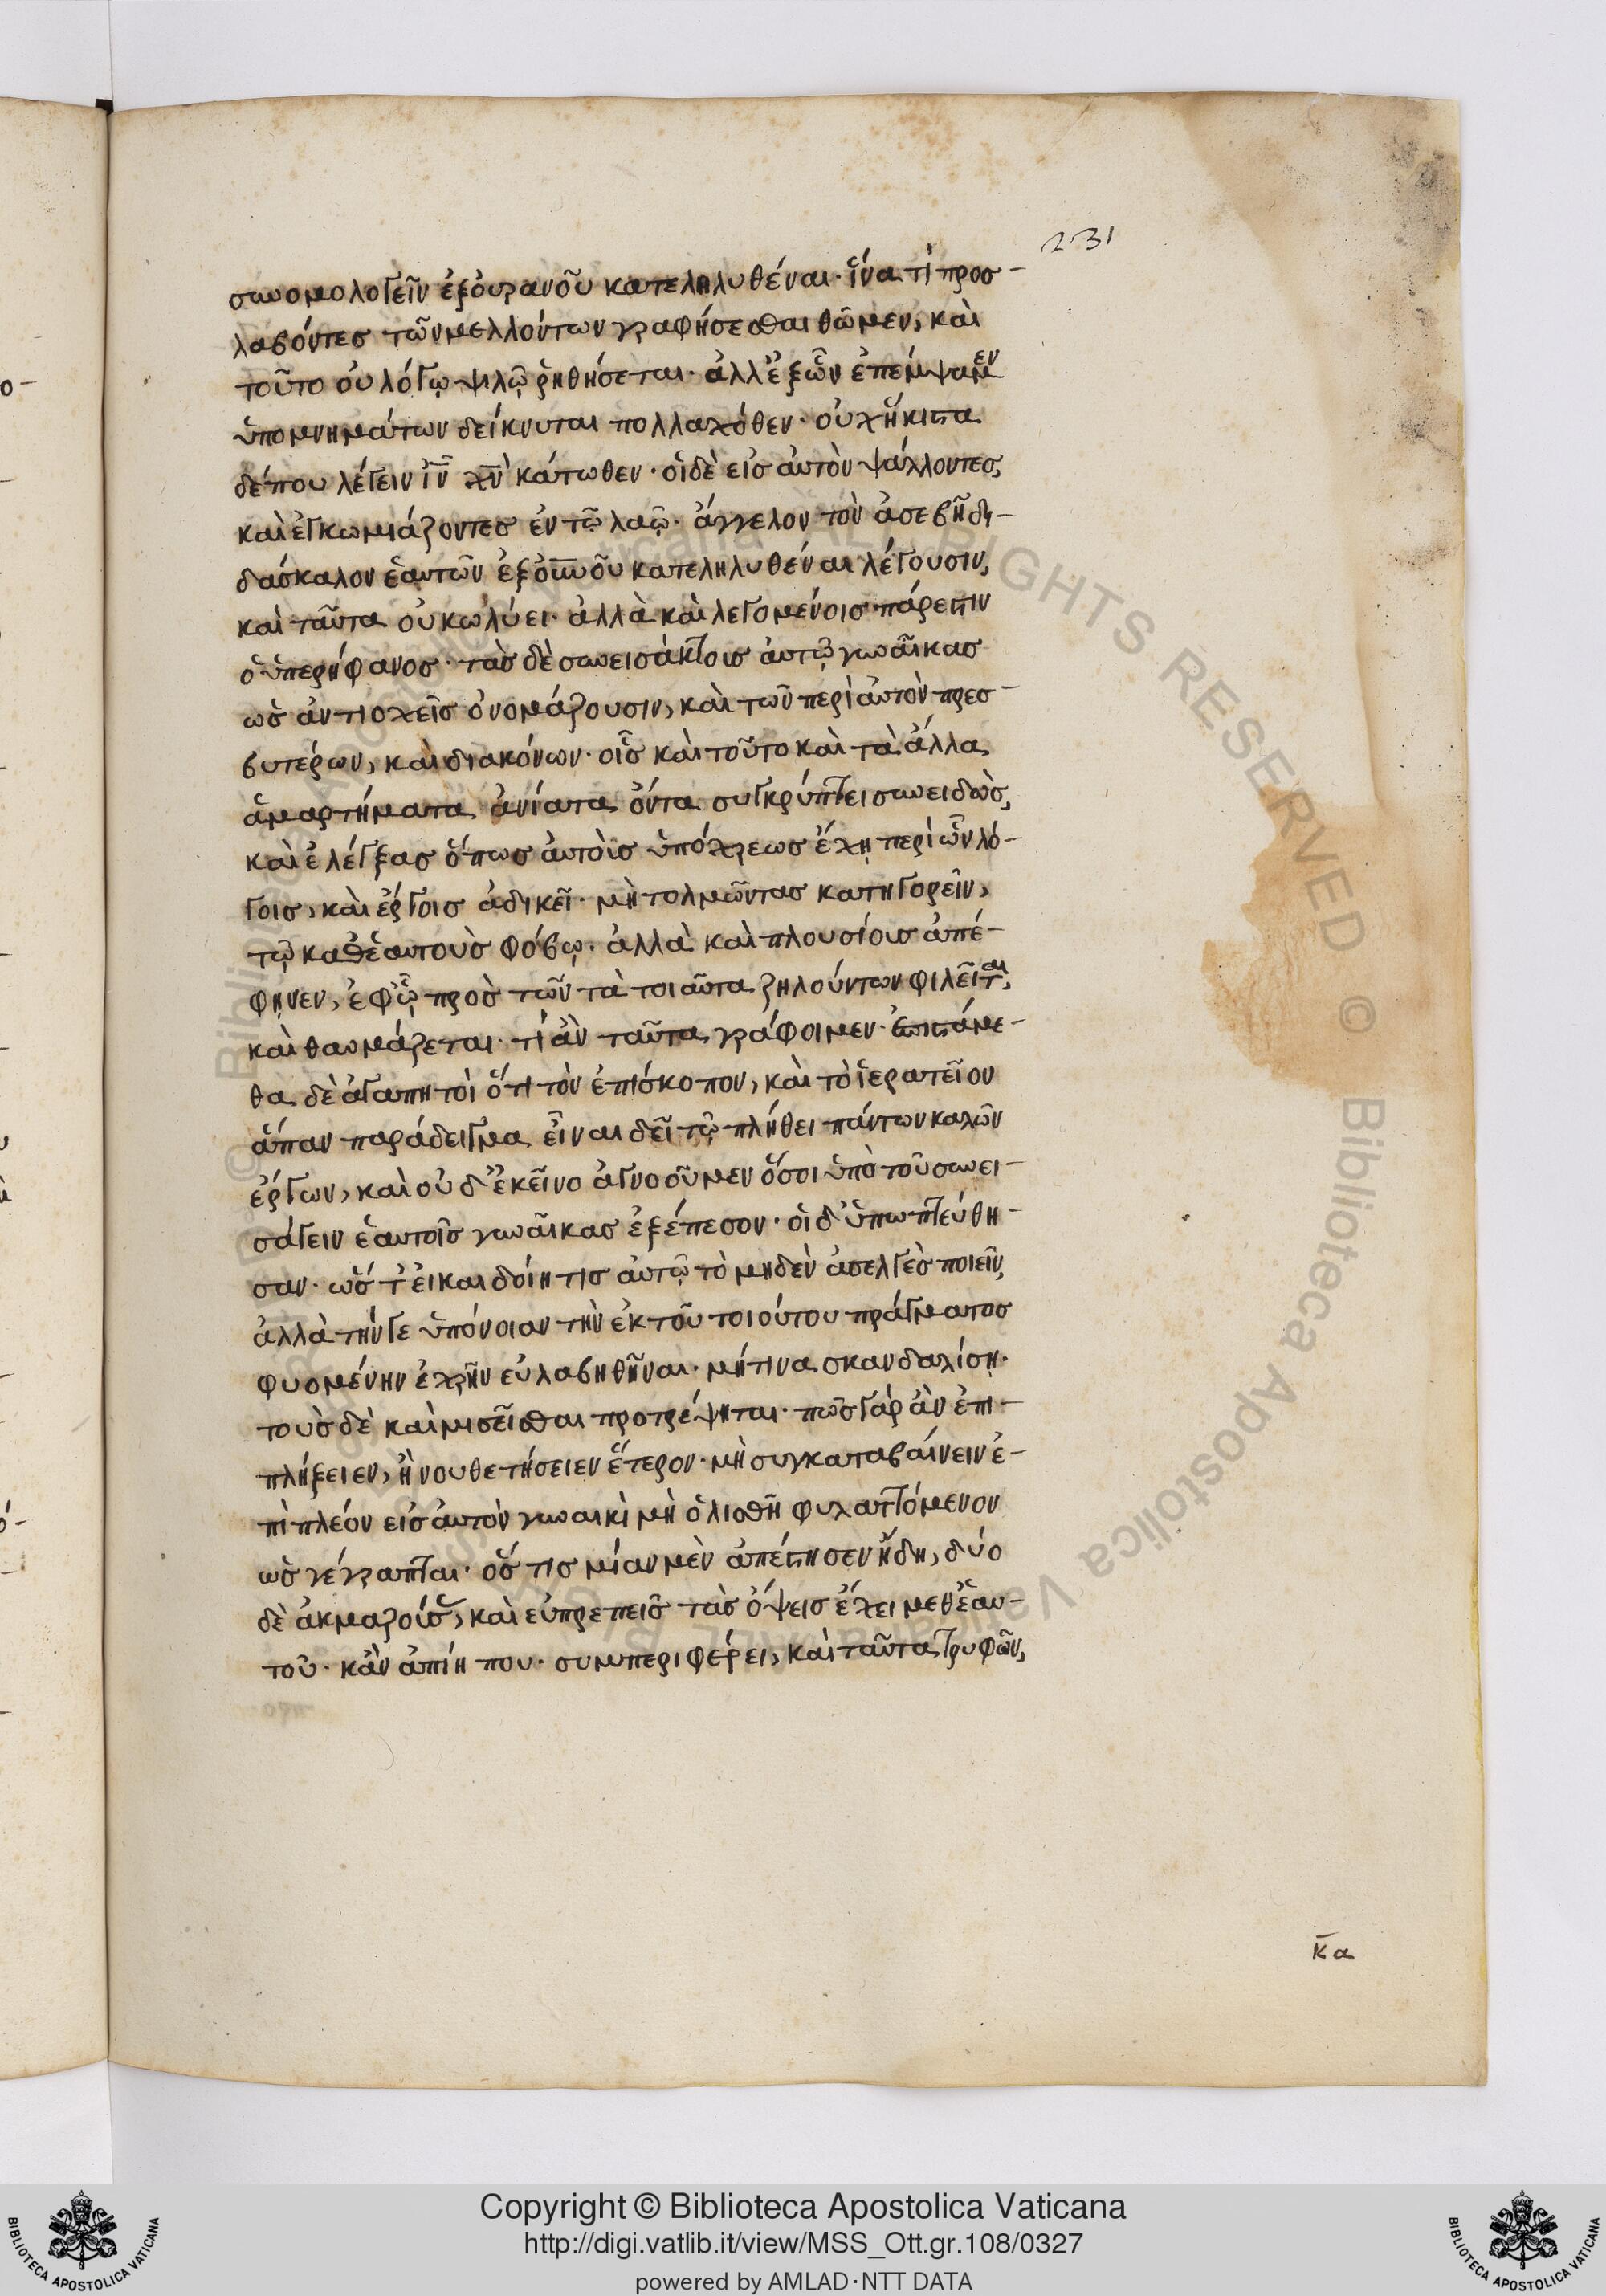 231
συνομολογεῖν ἐξ οὐρανοῦ κατεληλυθέναι· ἵνα τὶ προσ-
λαβόντες τῶν μελλόντων γραφήσεσθαι θῶμεν, καὶ
τοῦτο οὐ λόγῳ ψιλῷ ῥηθήσεται· ἀλλ' ἐξ ὧν ἐπέμψαμεν
ὑπομνημάτων δείκνυται πολλαχόθεν· οὐχ ἥκιστα
δέπου λέγειν ἰν χν κάτωθεν· οἱ δὲ εἰς αὐτὸν ψάλλοντες,
καὶ ἐγκωμιάζοντες ἐν τῷ λαῷ· ἄγγελον τὸν ἀσεβῆ δι-
δάσκαλον ἑαυτῶν ἐξ οὐνοῦ κατεληλυθέναι λέγουσιν,
καὶ ταῦτα οὐ κωλύει· ἀλλὰ καὶ λεγομένοις πάρεστιν
ὁ ὑπερήφανος· τὰς δὲ συνεισάκτοις αὐτῷ γυναῖκας
ὡς ἀντιοχεῖς ὀνομάζουσιν, καὶ τῶν περὶ αὐτὸν πρεσ-
βυτέρων, καὶ διακόνων· οἷς καὶ τοῦτο καὶ τὰ ἄλλα
ἁμαρτήματα ἀνίατα ὄντα συγκρύπτει συνειδὼς,
καὶ ἐλέγξας ὅπως αὐτοὶς ὑπόχρεως ἔχῃ περὶ ὧν λό-
γοις, καὶ ἔργοις ἀδικεῖ· μὴ τολμῶντας κατηγορεῖν,
τῷ καθ' ἑαυτοὺς φόβῳ· ἀλλὰ καὶ πλουσίοις ἀπέ-
φηνεν, ἐφ' ᾧ πρὸς τῶν τὰ τοιαῦτα ζηλούντων φιλεῖται,
καὶ θαυμάζεται· τί ἂν ταῦτα γράφοιμεν· ἐπιστάμε-
θα δὲ ἀγαπητοὶ ὅτι τὸν ἐπίσκοπον, καὶ τὸ ἱερατεῖον
ἅπαν παράδειγμα εἶναι δεῖ τῷ πλήθει πάντων καλῶν
ἔργων, καὶ οὐδ' ἐκεῖνο ἀγνοοῦμεν ὅσοι ὑπὸ τοῦ συνει-
σάγειν ἑαυτοῖς γυναῖκας ἐξέπεσον· οἱ δ' ὑπωπτεύθη-
σαν· ὥς τ' εἰ καὶ δοίη τις αὐτῷ τὸ μηδὲν ἀσελγὲς ποιεῖν,
ἀλλὰ τήν γε ὑπόνοιαν τὴν ἐκ τοῦ τοιούτου πράγματος
φυομένην ἐχρῆν εὐλαβηθῆναι· μή τινα σκανδαλίσῃ·
τοὺς δὲ καὶ μισεῖσθαι προτρέψηται· πῶς γὰρ ἂν ἐπι-
πλήξειεν, ἢ νουθετήσειεν ἕτερον· μὴ συγκαταβαίνειν ἐ-
πὶ πλέον εἰς αὐτὸν γυναικὶ μὴ ὀλισθῆ φυλαττόμενον
ὡς γέγραπται· ὅς τις μίαν μὲν ἀπέστησεν ἤδη, δύο
δὲ ἀκμαζούσας, καὶ εὐπρεπεῖς τὰς ὄψεις ἔχει μεθ' ἑαυ-
τοῦ· κἂν ἀπίη που· συμπεριφέρει, καὶ ταῦτα τρυφῶν,
κα
Copyright © Biblioteca Apostolica Vaticana
http://digi.vatlib.it/view/MSS_Ott.gr.108/0327
powered by AMLAD·NTT DATA